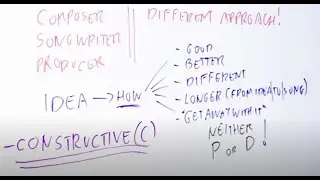 COMPOSER
SONGWRITER
PRODUCER
DIFFERENT APPROACH!
IDEA → HOW
- GOOD
- BETTER
- DIFFERENT
- LONGER (FROM IDEA/TU/SONG)
- "GET AWAY WITH IT"
NEITHER
P OR D!
- CONSTRUCTIVE (C)